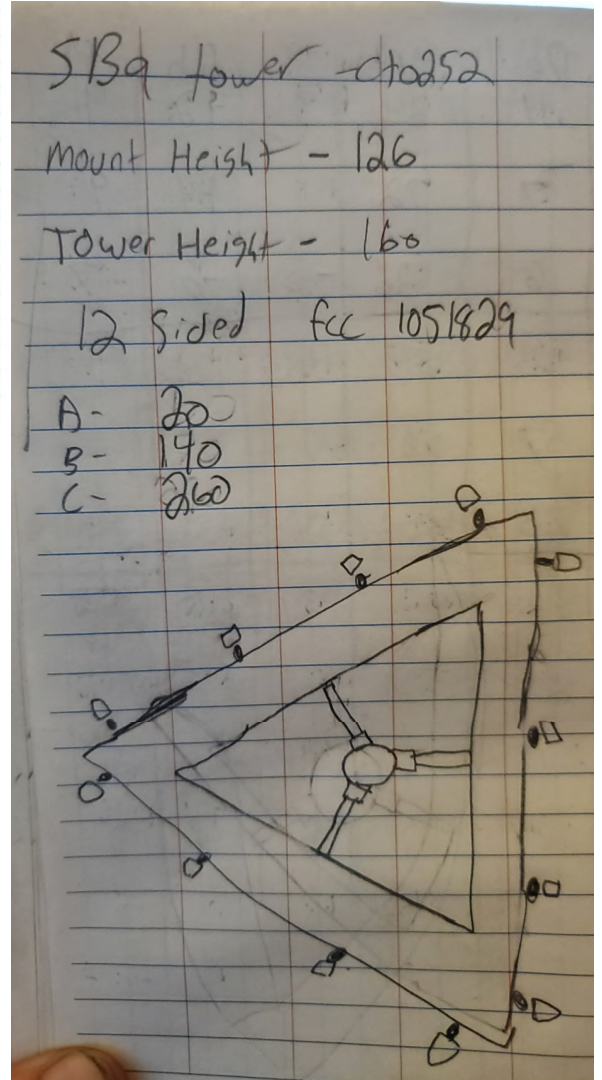 SBA tower - ct0252
Mount Height - 126
Tower Height - 160
12 Sided fcc 1051829
A- 20
B- 140
C- 260